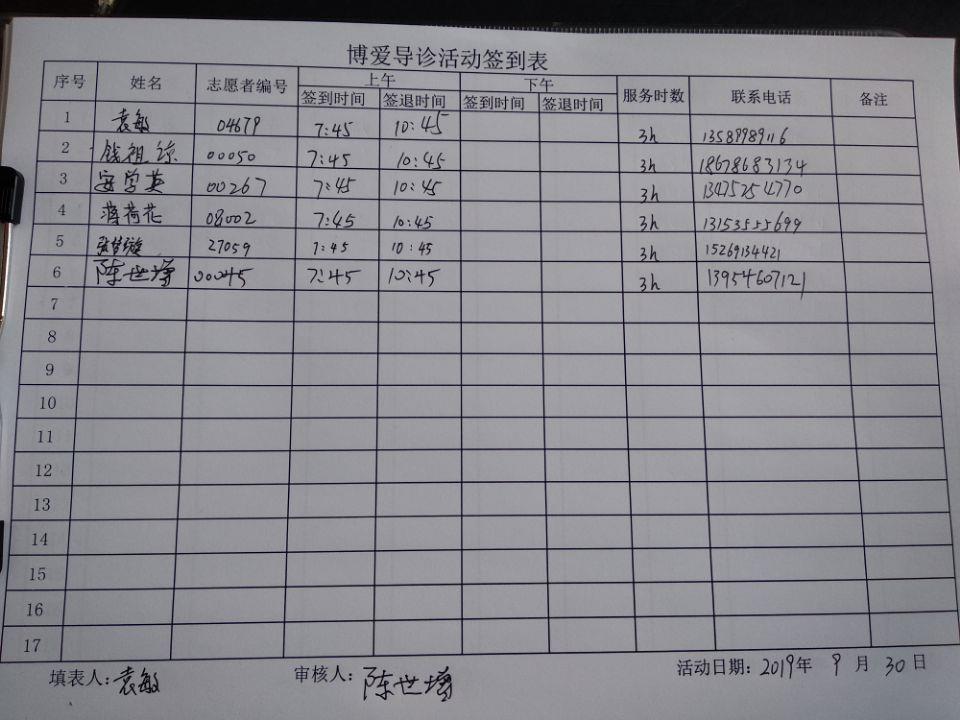 博爱导诊活动签到表
序号 姓名 志愿者编号 上午 下午 服务时数 联系电话 备注
签到时间 签退时间 签到时间 签退时间
1 袁敏 04679 7:45 10:45 3h 13589989116
2 钱祖琼 00050 7:45 10:45 3h 18678683134
3 安学英 00267 7:45 10:45 3h 13475254770
4 薄荷花 08002 7:45 10:45 3h 13153555699
5 27059 7:45 10:45 3h 15269134421
6 陈世增 00045 7:45 10:45 3h 13954607121
7
8
9
10
11
12
13
14
15
16
17
填表人:袁敏 审核人:陈世增 活动日期:2019年 9 月 30 日